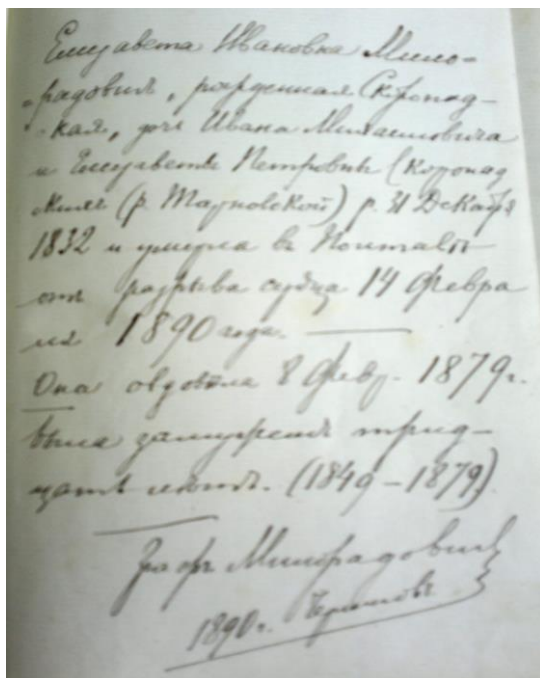 Елизавета Ивановна Мило-
радовичъ, рожденная Скоропад-
ская, дочь Ивана Михайловича
и Елизаветы Петровны Скоропад
скихъ (р. Тарновской) р. 31 Декабря
1832 и умерла въ
отъ разрыва сердца 14 февра
ля 1890 года.
Она овдовѣла 8 февр. 1879 г.
была замужемъ трид-
цать лѣтъ. (1849 – 1879)
Графъ Милорадовичъ
1890 г. Черниговъ